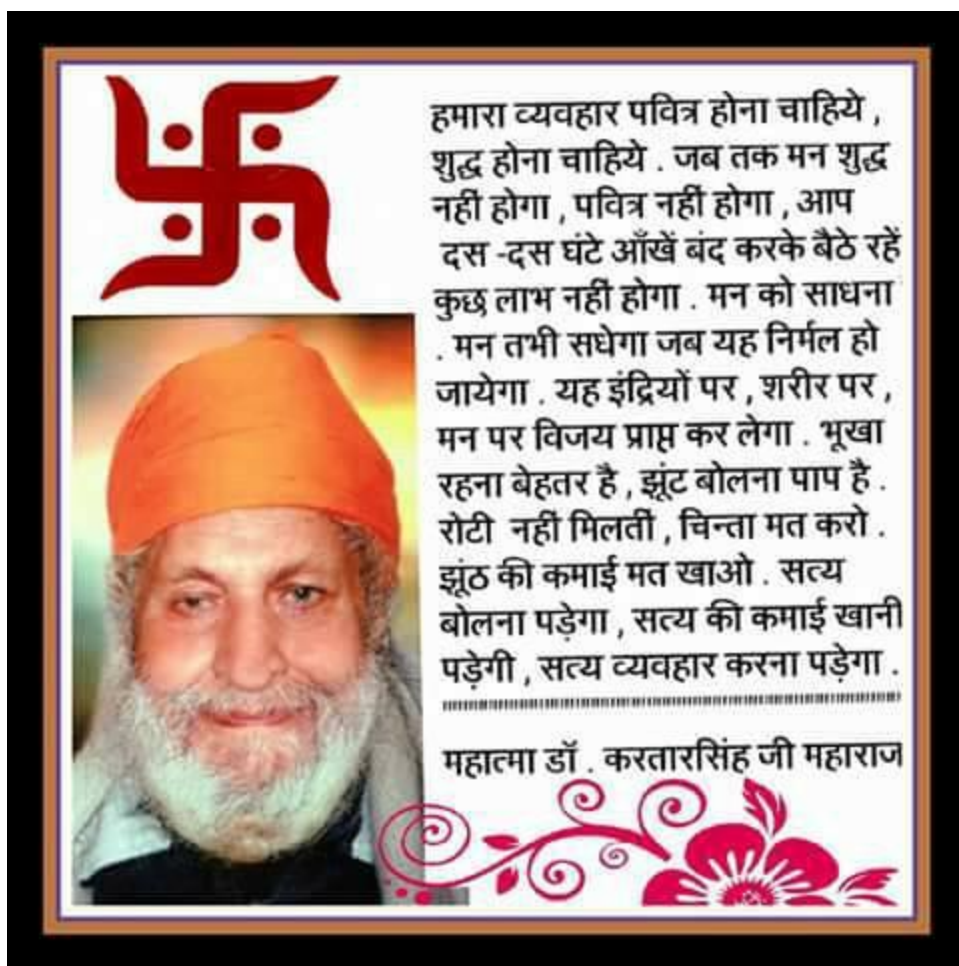 हमारा व्यवहार पवित्र होना चाहिये ,
शुद्ध होना चाहिये . जब तक मन शुद्ध
नहीं होगा , पवित्र नहीं होगा , आप
दस -दस घंटे आँखें बंद करके बैठे रहें
कुछ लाभ नहीं होगा . मन को साधना
. मन तभी सधेगा जब यह निर्मल हो
जायेगा . यह इंद्रियों पर , शरीर पर ,
मन पर विजय प्राप्त कर लेगा . भूखा
रहना बेहतर है , झूंट बोलना पाप है .
रोटी नहीं मिलती , चिन्ता मत करो .
झूंठ की कमाई मत खाओ . सत्य
बोलना पड़ेगा , सत्य की कमाई खानी
पड़ेगी , सत्य व्यवहार करना पड़ेगा .
महात्मा डॉ . करतारसिंह जी महाराज